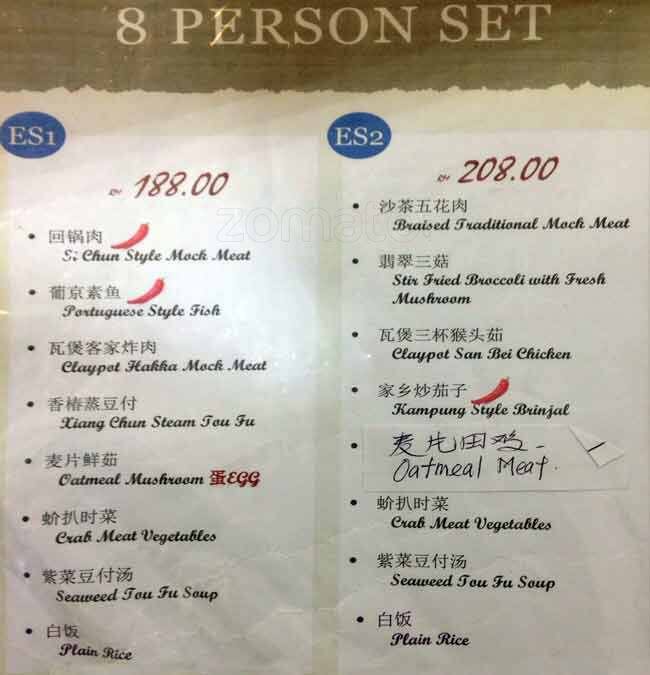 8 PERSON SET
ES1
RM 188.00
回锅肉
Si Chun Style Mock Meat
葡京素鱼
Portuguese Style Fish
瓦煲客家炸肉
Claypot Hakka Mock Meat
香椿蒸豆付
Xiang Chun Steam Tou Fu
麦片鲜茹
Oatmeal Mushroom 蛋EGG
蚧扒时菜
Crab Meat Vegetables
紫菜豆付汤
Seaweed Tou Fu Soup
白饭
Plain Rice
ES2
RM 208.00
沙茶五花肉
Braised Traditional Mock Meat
翡翠三菇
Stir Fried Broccoli with Fresh
Mushroom
瓦煲三杯猴头茹
Claypot San Bei Chicken
家乡炒茄子
Kampung Style Brinjal
麦片田鸡
Oatmeal Meat.
蚧扒时菜
Crab Meat Vegetables
紫菜豆付汤
Seaweed Tou Fu Soup
白饭
Plain Rice
zomato